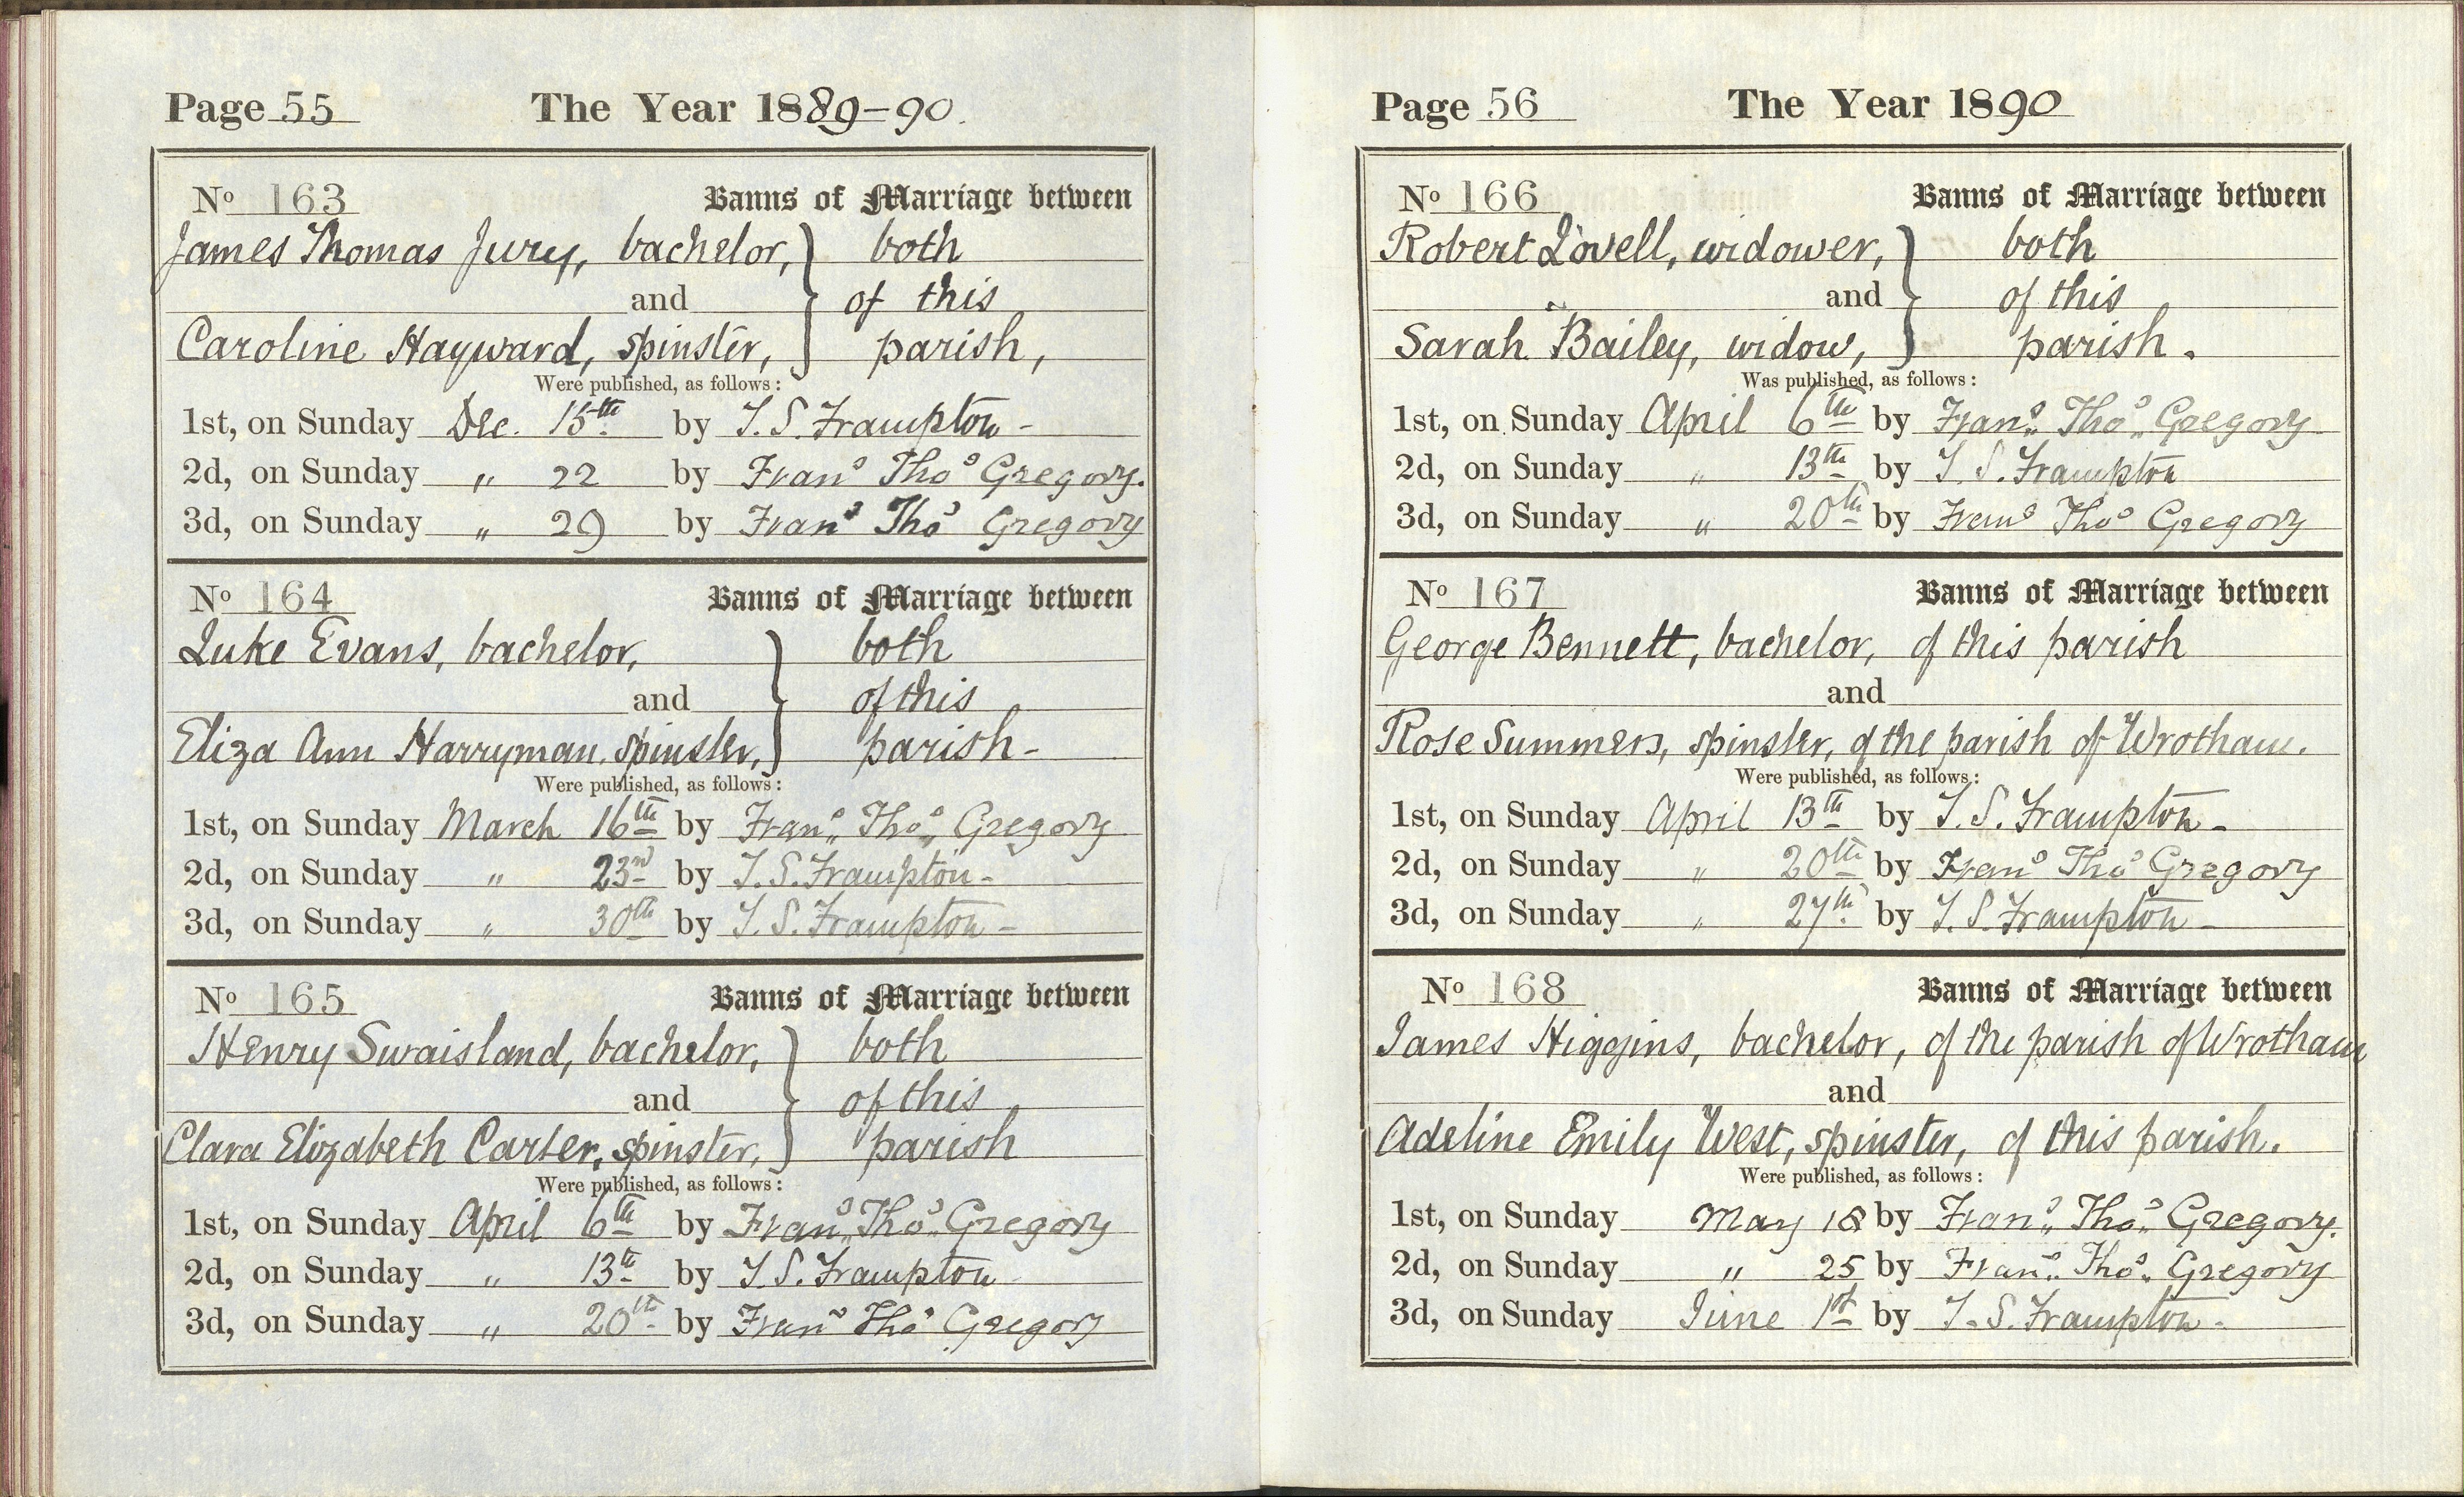 Page 55 The Year 1889-90.
No 163 Banns of Marriage between
James Thomas Jury, bachelor, } both
and of this
Caroline Hayward, spinster, parish,
Were published, as follows:
1st, on Sunday Dec. 15th by T. S. Frampton -
2d, on Sunday " 22 by Frans Thos Gregory.
3d, on Sunday " 29 by Frans Thos Gregory
No 164 Banns of Marriage between
Luke Evans, bachelor, } both
and of this
Eliza Ann Harryman, spinster, parish -
Were published, as follows:
1st, on Sunday March 16th by Frans Thos Gregory
2d, on Sunday " 23rd by T. S. Frampton -
3d, on Sunday " 30th by T. S. Frampton -
No 165 Banns of Marriage between
Henry Swaisland, bachelor, } both
and of this
Clara Elizabeth Carter, spinster, parish
Were published, as follows:
1st, on Sunday April 6th by Frans Thos Gregory
2d, on Sunday " 13th by T. S. Frampton
3d, on Sunday " 20th by Frans Thos Gregory
Page 56 The Year 1890
No 166 Banns of Marriage between
Robert Lovell, widower, } both
and of this
Sarah Bailey, widow, parish.
Was published, as follows:
1st, on Sunday April 6th by Frans Thos Gregory
2d, on Sunday " 13th by T. S. Frampton
3d, on Sunday " 20th by Frans Thos Gregory
No 167 Banns of Marriage between
George Bennett, bachelor, of this parish
and
Rose Summers, spinster, of the parish of Wrotham.
Were published, as follows:
1st, on Sunday April 13th by T. S. Frampton -
2d, on Sunday " 20th by Frans Thos Gregory
3d, on Sunday " 27th by T. S. Frampton -
No 168 Banns of Marriage between
James Higgins, bachelor, of the parish of Wrotham
and
Adeline Emily West, spinster, of this parish.
Were published, as follows:
1st, on Sunday May 18 by Frans Thos Gregory.
2d, on Sunday " 25 by Frans Thos Gregory
3d, on Sunday June 1st by T. S. Frampton -